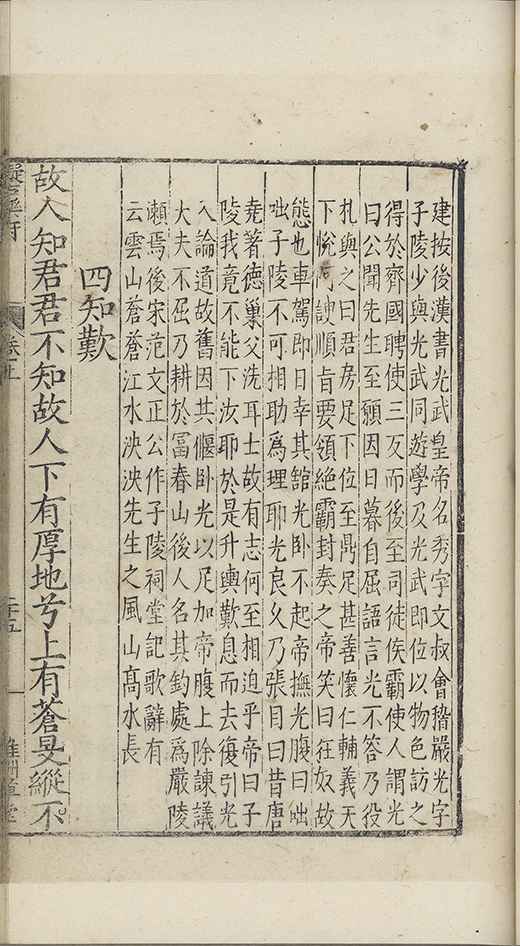 建按後漢書光武皇帝名秀字文叔會稽嚴光字
子陵少與光武同遊學及光武即位以物色訪之
得於齊國聘使三反而後至司徒侯霸使人謂光
曰公聞先生至願因日暮自屈語言光不答乃投
札與之曰君房足下位至鼎足甚善懷仁輔義天
下悅阿諛順旨要領絕霸封奏之帝笑曰狂奴故
態也車駕即日幸其館光卧不起帝撫光腹曰咄
咄子陵不可相助為理耶光良久乃張目曰昔唐
堯著德巢父洗耳士故有志何至相迫乎帝曰子
陵我竟不能下汝耶於是升輿歎息而去復引光
入論道故舊因共偃卧光以足加帝腹上除諫議
大夫不屈乃耕於富春山後人名其釣處為嚴陵
瀨焉後宋范文正公作子陵祠堂記歌辭有
云雲山蒼蒼江水泱泱先生之風山高水長
四知歎
故人知君君不知故人下有厚地兮上有蒼旻縱不